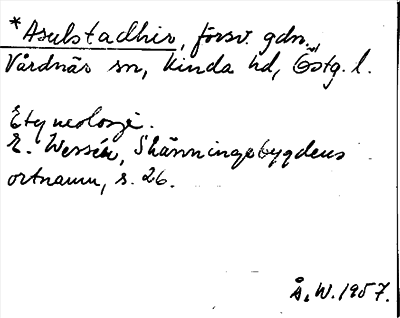 *Asulstadhir, försv. gdn.
Vårdnäs sn, Kinda hd, Östg. l.
Etymologi.
E. Wessén, Skänningebygdens
ortnamn, s. 26.
Å. W. 1957.